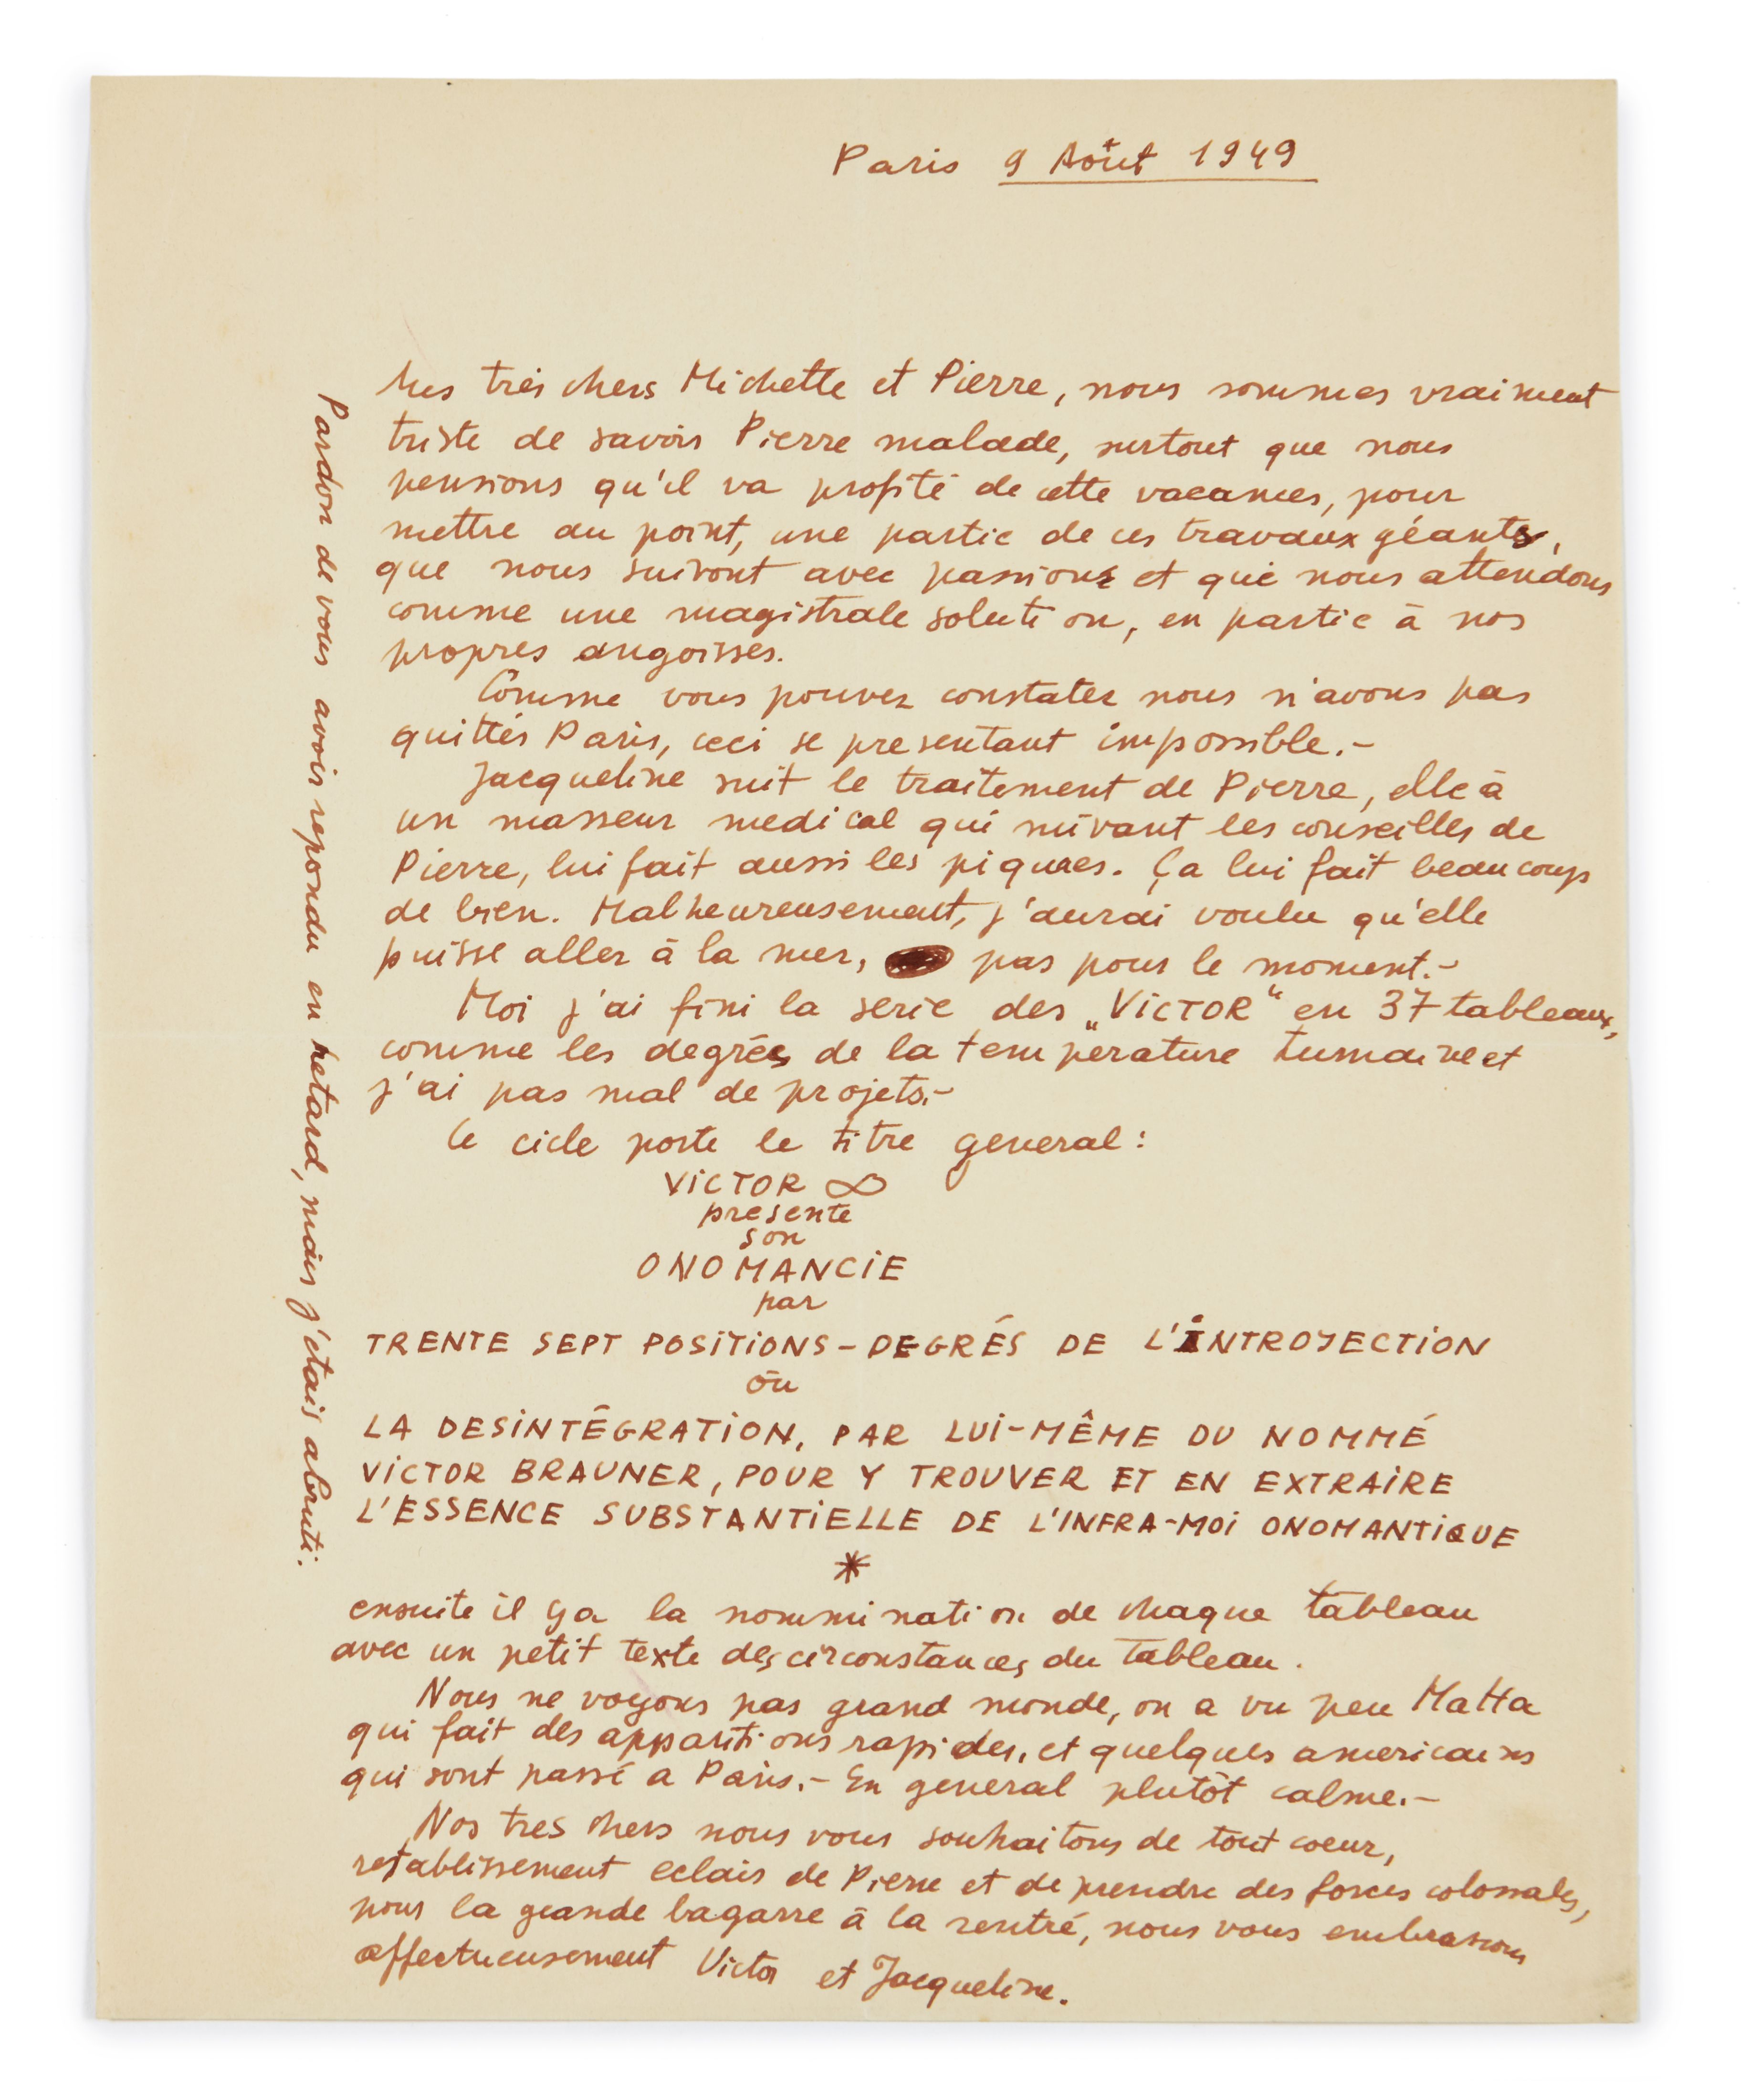 Paris 9 Août 1949
Mes très chers Michette et Pierre, nous sommes vraiment
triste de savoir Pierre malade, surtout que nous
pensions qu'il va profité de cette vacances, pour
mettre au point, une partie de ces travaux géants,
que nous suivont avec passions et que nous attendons
comme une magistrale solution, en partie à nos
propres angoisses.
Comme vous pouvez constater nous n'avons pas
quittés Paris, ceci se presentant impossible.-
Jacqueline suit le traitement de Pierre, elle à
un masseur medical qui suivant les conseilles de
Pierre, lui fait aussi les piqures. Ça lui fait beaucoup
de bien. Malheureusement, j'aurai voulu qu'elle
puisse aller à la mer, pas pour le moment.-
Moi j'ai fini la serie des „ViCTOR“ en 37 tableaux,
comme les degrées de la temperature humaine et
j'ai pas mal de projets.-
Ce cicle porte le titre general:
ViCTOR ∞
presente
son
ONOMANCiE
par
TRENTE SEPT POSiTiONS-DEGRÉS DE L'iNTROJECTiON
ou
LA DESiNTÉGRATiON, PAR LUi-MÊME DU NOMMÉ
ViCTOR BRAUNER, POUR Y TROUVER ET EN EXTRAiRE
L'ESSENCE SUBSTANTiELLE DE L'INFRA-MOi ONOMANTiQUE
*
ensuite il ya la nommination de chaque tableau
avec un petit texte des circonstances du tableau.
Nous ne voyons pas grand monde, on a vu peu Matta
qui fait des apparitions rapides, et quelques americains
qui sont passé a Paris.- En general plutôt calme.-
Nos tres chers nous vous souhaitons de tout coeur,
retablissement eclair de Pierre et de prendre des forces colossales,
pour la grande bagarre à la rentré, nous vous embrassons
affectueusement Victor et Jacqueline.
Pardon de vous avoir repondu en retard, mais j'étais abruti.